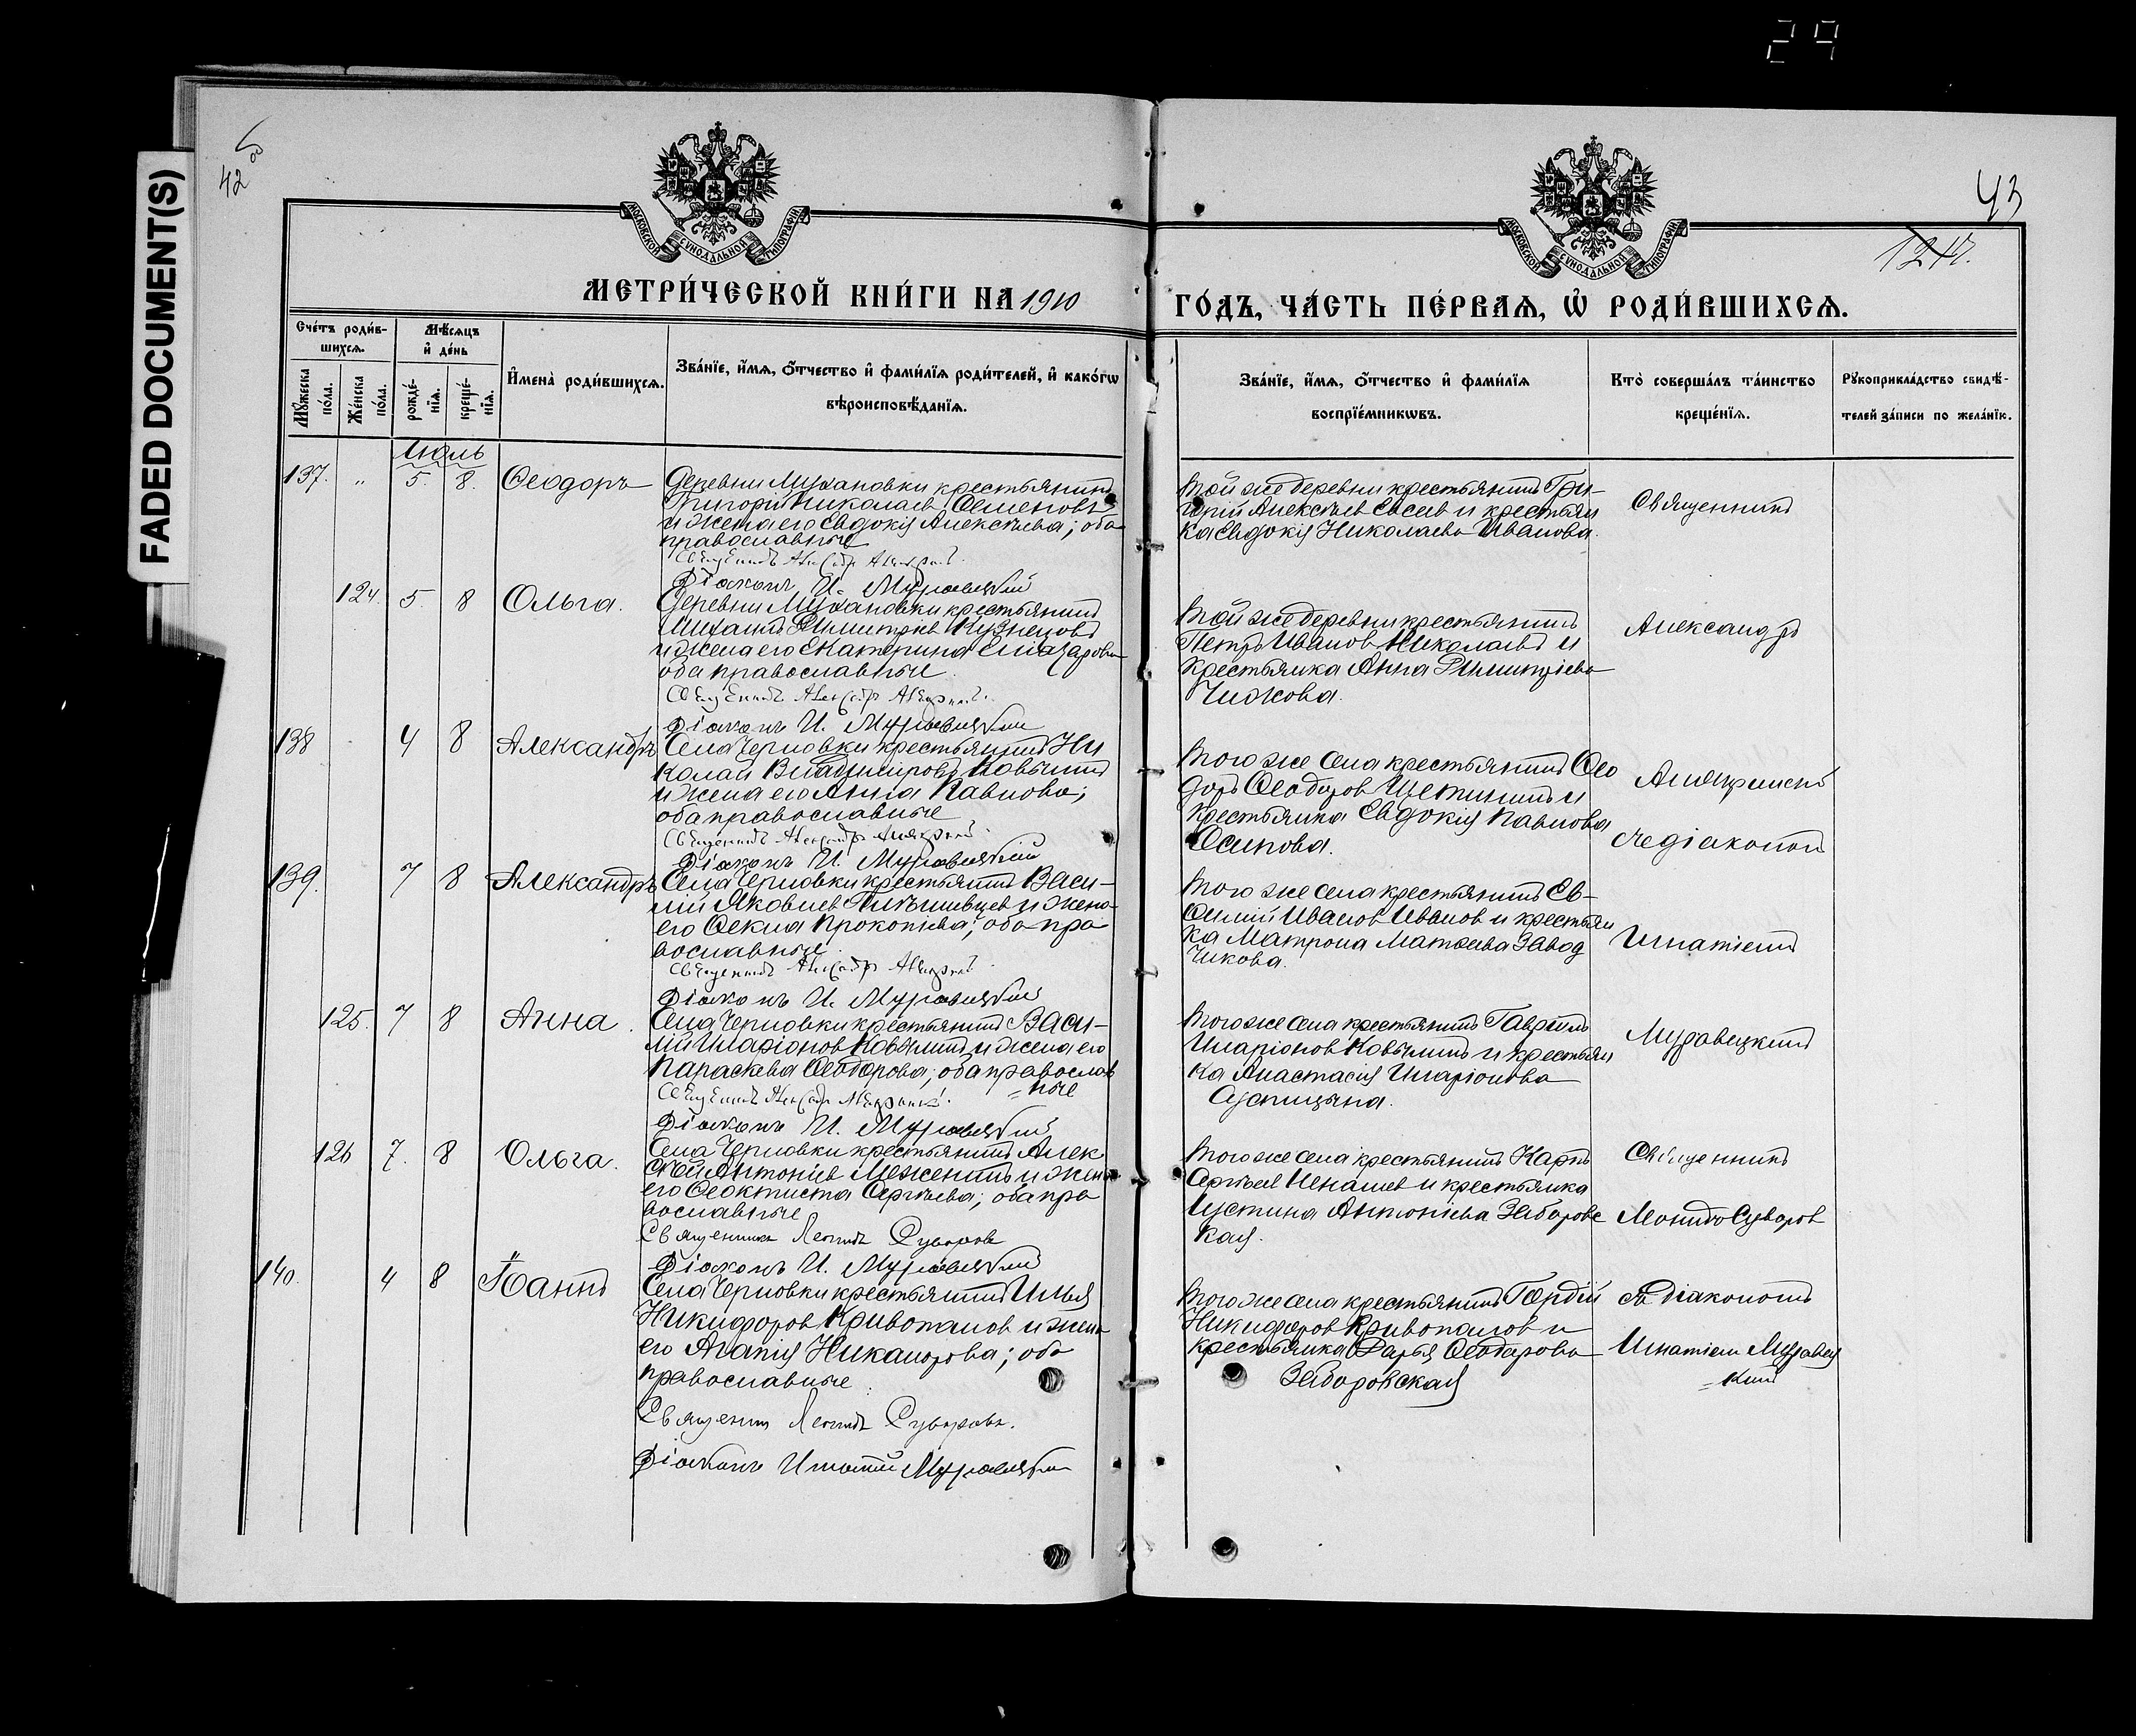 29
FADED DOCUMENT(S)
42 об
43
1214.
МОСКОВСКОЙ СѴНОДАЛЬНОЙ ТИПОГРАФІИ
МОСКОВСКОЙ СѴНОДАЛЬНОЙ ТИПОГРАФІИ
МЕТРИ́ЧЕСКОЙ КНИ́ГИ НА 1910
ГО́ДЪ, ЧА́СТЬ ПЕ́РВАѦ, Ѡ҆ РОДИ́ВШИХСѦ.
Сче́тъ роди́в-
шихсѧ.
Мꙋ́жеска по́ла.
Же́нска по́ла.
Мѣ́сѧцъ
и҆ де́нь
рожде́-
нїѧ.
креще́-
нїѧ.
И҆мена̀ роди́вшихсѧ.
Зва́нїе, и҆́мѧ, ѻ҆́тчество и҆ фами́лїѧ роди́телей, и҆ како́гѡ
вѣроисповѣ́данїѧ.
Зва́нїе, и҆́мѧ, ѻ҆́тчество и҆ фами́лїѧ
воспрїе́мникѡвъ.
Кто̀ соверша́лъ та́инство
креще́нїѧ.
Рꙋкоприкла́дство свидѣ́-
телей за́писи по жела́нїю.
Июль
137. " 5. 8. Ѳеодоръ
Деревни Мухановки крестьянинъ
Григорій Николаевъ Семеновъ
и жена его Евдокія Алексѣева; оба
православные
Священникъ Александръ
Діаконъ И. Муравецкій
Той же деревни крестьянинъ Гри-
горій Алексѣев Евсев и крестьян
ка Евдокія Николаева Иванова.
Священникъ
124. 5. 8 Ольга.
Деревни Мухановки крестьянинъ
Михаилъ Димитріев Кузнецовъ
и жена его Екатерина Елиазарова
оба православные
Священникъ Александръ
Діаконъ И. Муравецкій
Той же деревни крестьянинъ
Петръ Иванов Николаевъ и
крестьянка Анна Димитріева
Чижова.
Александръ
138 4 8 Александръ
Села Черновки крестьянинъ Ни
колай Владимировъ Ковылинъ
и жена его Анна Павлова;
оба православные
Священникъ Александръ
Діаконъ И. Муравецкій
Того же села крестьянинъ Ѳео
доръ Ѳеодоров Щетининъ и
крестьянка Евдокія Павлова
Осипова.
с діакономъ
139. 7 8 Александръ
Села Черновки крестьянинъ Васи-
лій Яковлев и жена
его Ѳекла Прокопіева; оба пра
вославные
Священникъ Александръ
Діаконъ И. Муравецкій
Того же села крестьянинъ Ев-
ѳимій Иванов Иванов и крестьян
ка Матрона Матѳеева Завод
чикова.
Игнатіемъ
125. 7 8 Анна.
Села Черновки крестьянинъ Васи-
лій Иларіонов Ковылинъ и жена его
Параскева Ѳеодорова; оба православ
=ные
Священникъ Александръ
Діаконъ И. Муравецкій
Того же села крестьянинъ Гавріилъ
Иларіонов Ковылинъ и крестьян
ка Анастасія Иларіонова
Муравецкимъ
126 7. 8 Ольга.
Села Черновки крестьянинъ Алек
сѣй Антоніев и жена
его Ѳеоктиста Сергѣева; оба пра
вославные
Священникъ Леонидъ Суворовъ
Діаконъ И. Муравецкій
Того же села крестьянинъ Карпъ
Сергѣев и крестьянка
Іустина Антоніева Заборовс
кая.
Священникъ
Леонидъ Суворов
140. 4 8 Іоаннъ
Села Черновки крестьянинъ Илья
Никифоров Кривопалов и жена
его Агапія Никанорова; оба
православные
Священникъ Леонидъ Суворовъ.
Діаконъ Игнатій Муравецкій
Того же села крестьянинъ Гордій
Никифоров Кривопалов и
крестьянка Дарья Ѳеодорова
Заборовская
съ діакономъ
Игнатіем Муравец
=кимъ